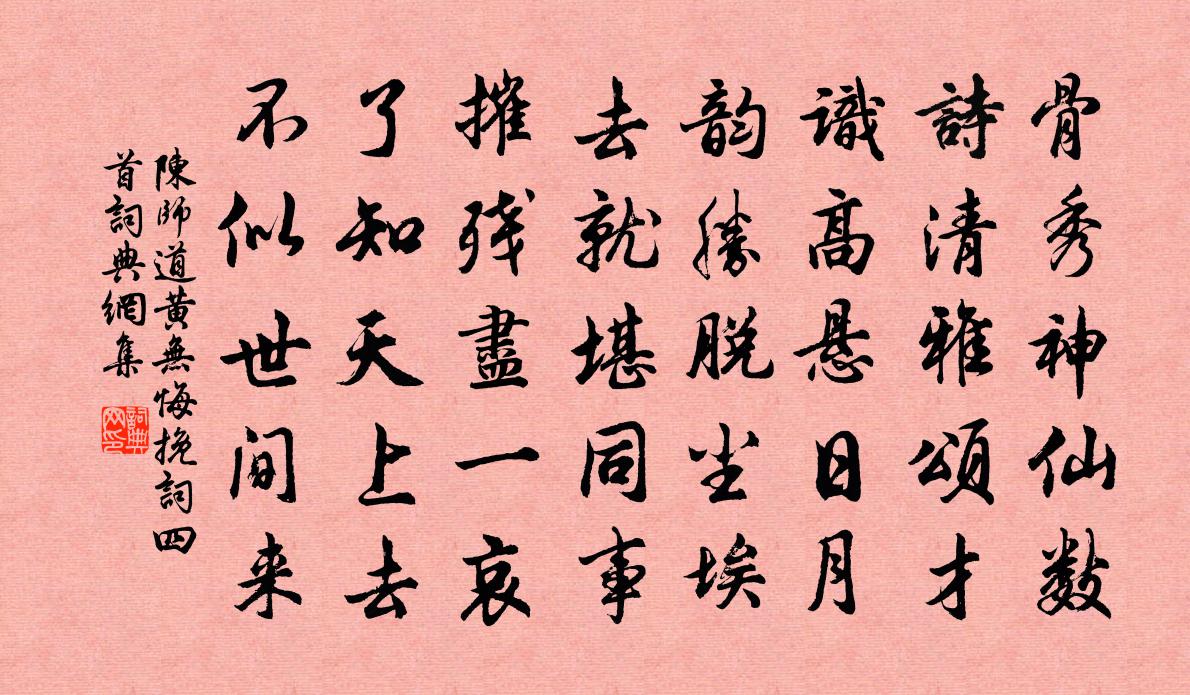 骨秀神仙数
詩清雅頌才
識高悬日月
韵勝脱尘埃
去就堪同事
摧残盡一哀
了知天上去
不似世间来
陳師道黄無悔挽詞四
首詞典網集
詞典
网印